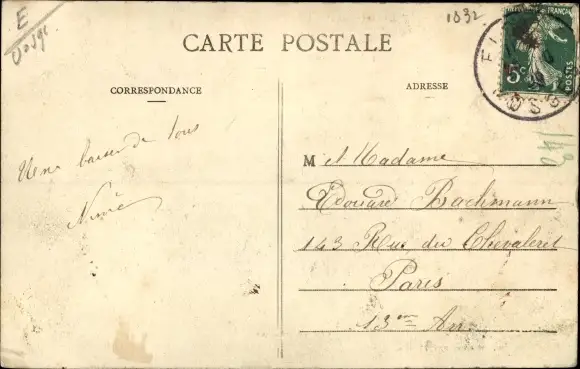 E
Vosges
1832
CARTE POSTALE
FRANÇAISE
5c
POSTES
CORRESPONDANCE
ADRESSE
Une baiser de tous
M et Madame
Edouard Bachmann
143 Rue du Chevaleret
Paris
13me Arr.